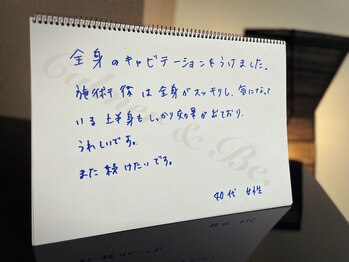 全身のキャビテーションをうけました。
施術後は全身がスッキリし、気になって
いる上半身もしっかり効果が出ており、
うれしいです。
また続けたいです。
40代 女性